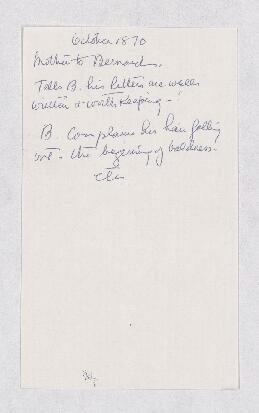 October 1870
Mother to Bernard.
Tells B. his letters are well
written & worth keeping -
B. Complains his hair falling
out - the beginning of baldness.
etc.